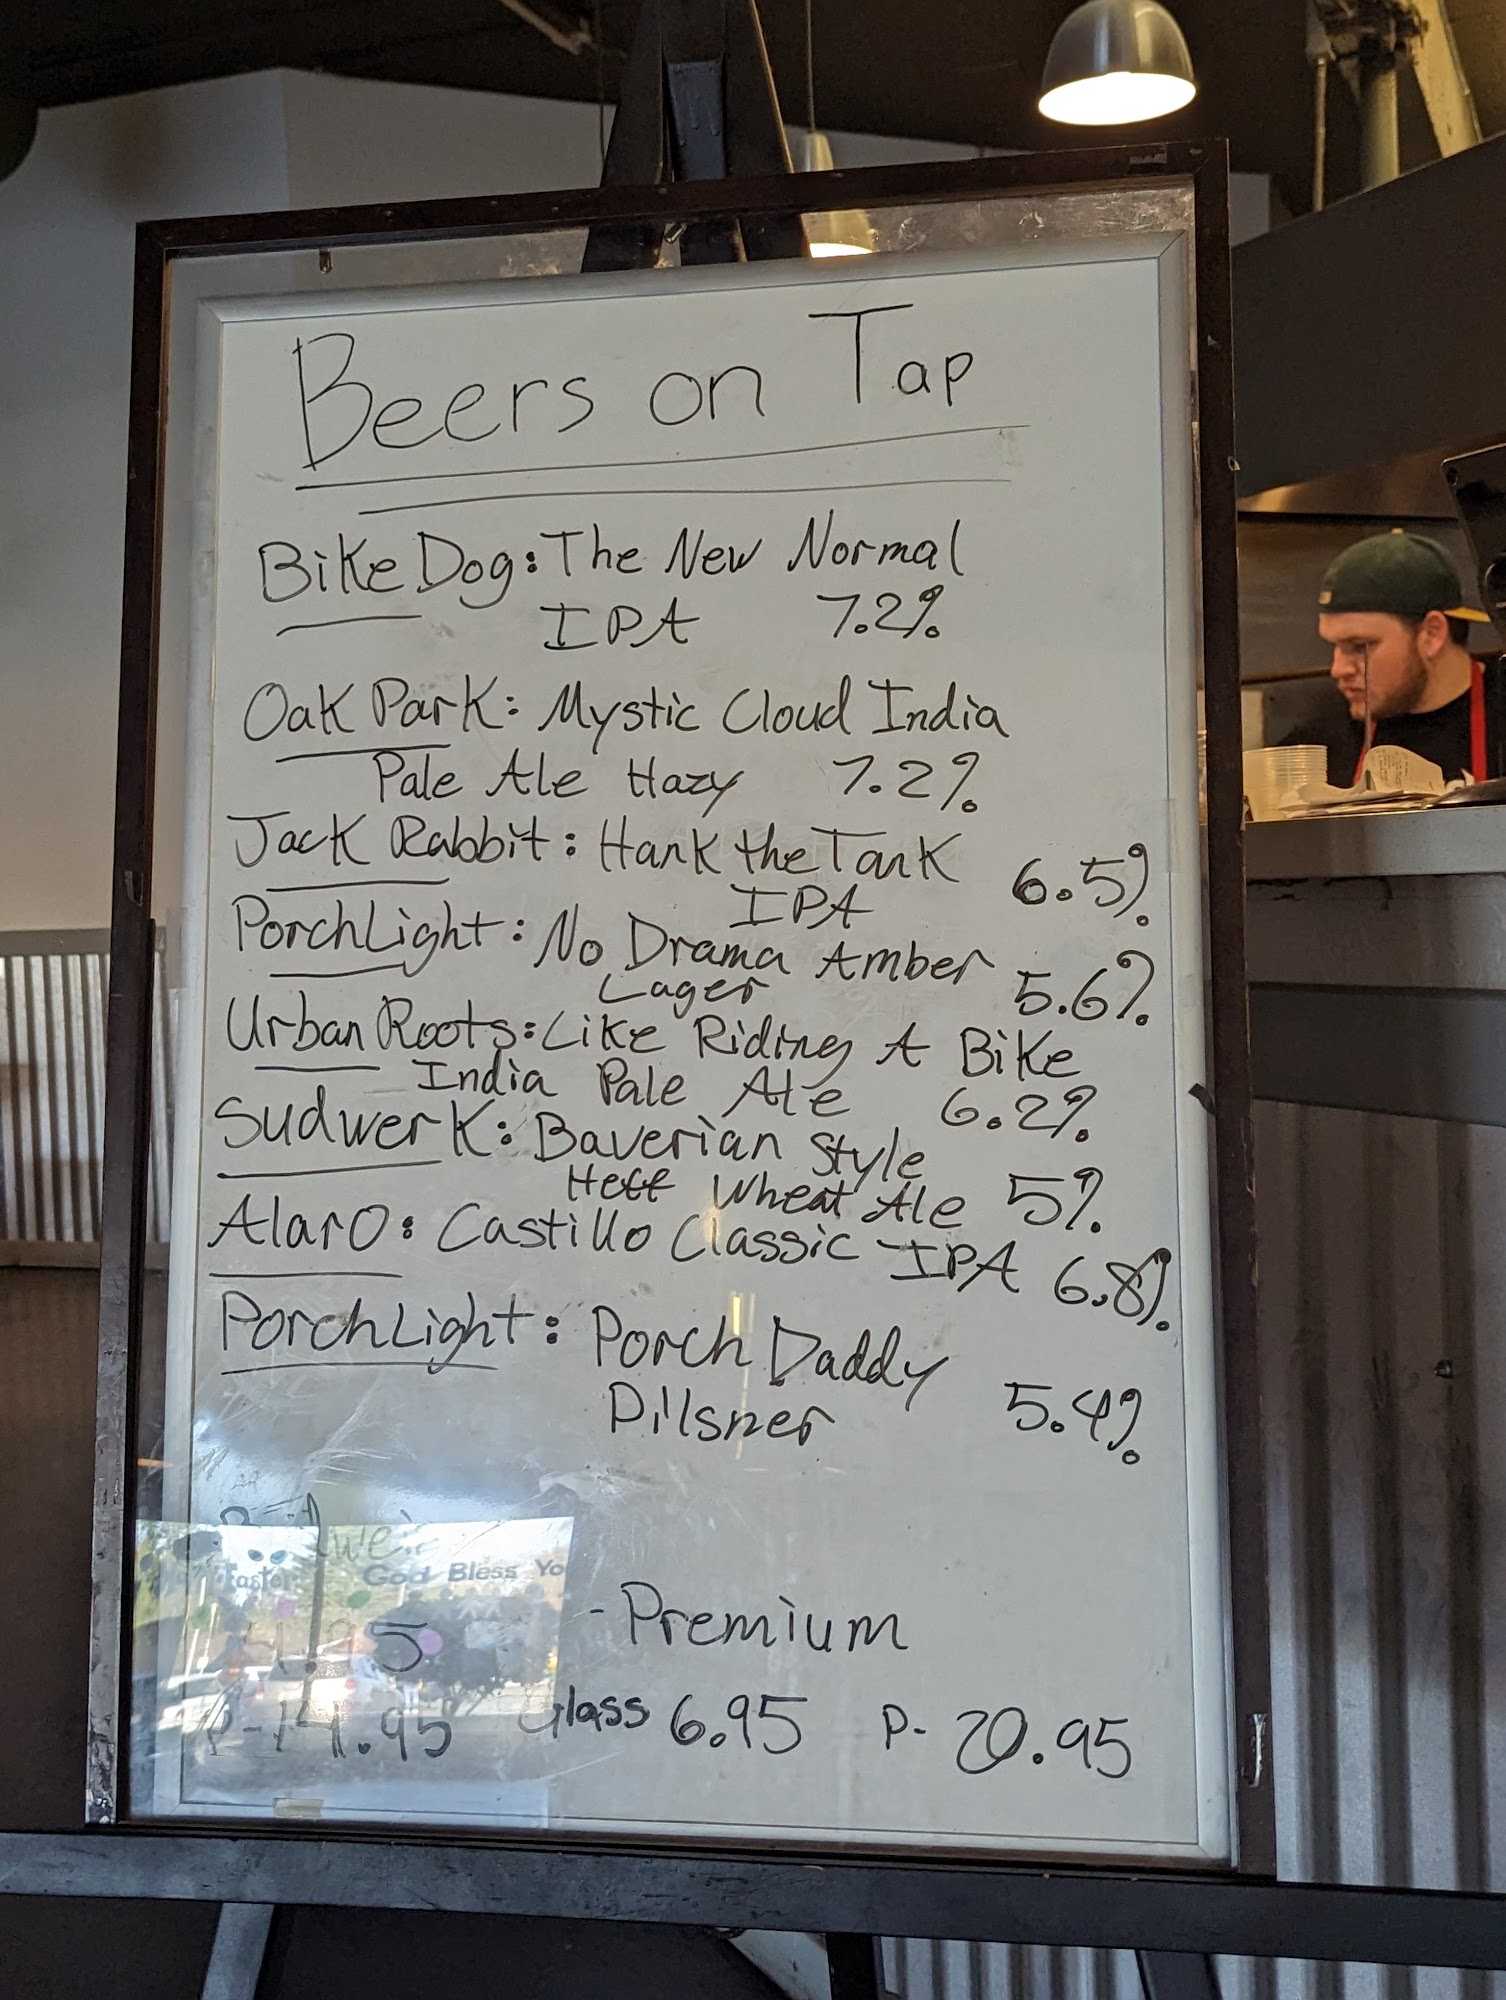 Beers on Tap
Bike Dog: The New Normal
IPA 7.2%
Oak Park: Mystic Cloud India
Pale Ale Hazy 7.2%
Jack Rabbit: Hank the Tank
IPA 6.5%
PorchLight: No Drama Amber
Lager 5.6%
Urban Roots: Like Riding A Bike
India Pale Ale 6.2%
Sudwerk: Baverian Style
Heff Wheat Ale 5%
Alaro: Castillo Classic IPA 6.8%
PorchLight: Porch Daddy
Pilsner 5.4%
God Bless Yo
- Premium
Glass 6.95 P- 20.95
P-14.95